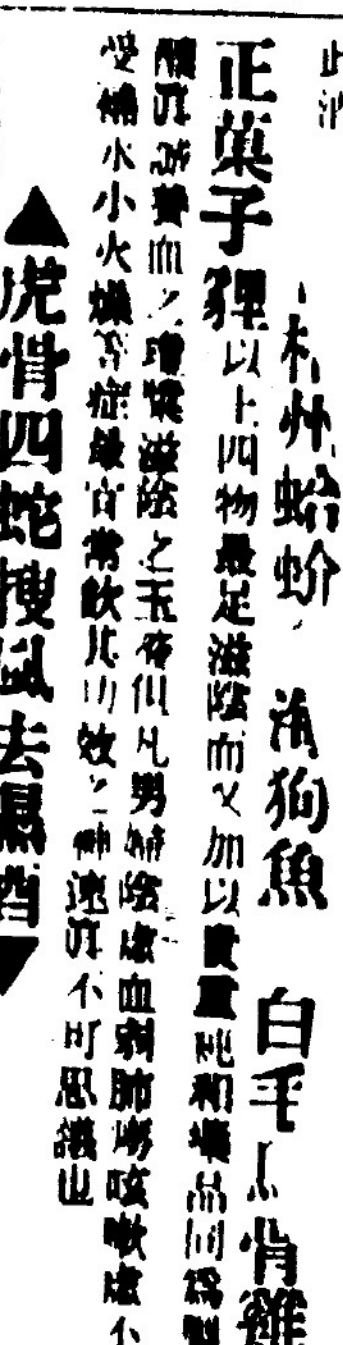 杭州蛤蚧 海狗魚 白毛 骨雞
正菓子貍以上四物最足滋陰而又加以貴重純和 品同為製
釀 誠養血之 滋陰之玉液但凡男婦陰虛血弱肺癆咳嗽虛不
受補水小火燥等症最宜常飲其功效之神速真不可思議也
▲虎骨四蛇搜風去濕酒▼